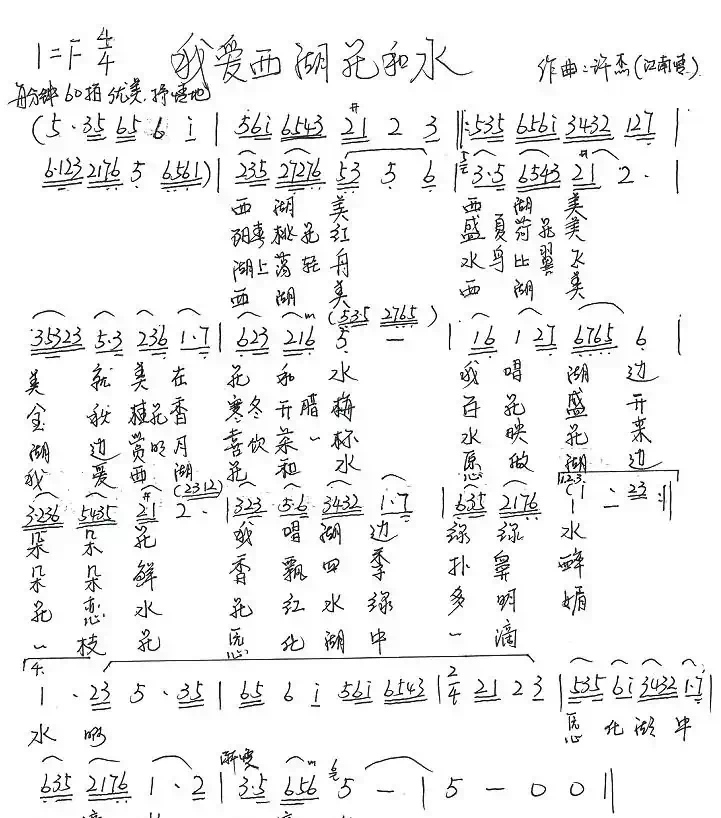 1=F 4/4 我爱西湖花和水 作曲:许杰(江南雪)
每分钟60拍 优美.抒情地
(5·35 65 6 i | 56i 6543 21 2 3 ||: 535 656i 3432 127 |
6·123 2176 5 6561) | 235 27276 53 5 6 | 3·5 6543 21 2· |
西湖美 西湖美
阳春桃花红 盛夏荷花美
湖上荡轻舟 水鸟比翼飞
西湖美 西湖美
(535 2765)
35323 5·3 236 1·7 | 623 216 5 — | 16 1 27 6765 6 |
美就美在花和水 我唱湖边
金秋桂花香 寒冬开腊梅 百花盛开
湖边赏明月 喜饮茶一杯 水映花来
我爱西湖花和水 愿做湖边
(2312) 1.2.3.
3·236 5435 21 2· | 323 5·6 3432 1·7 | 635 2176 1 — (i· 23 :||
朵朵花 我唱湖边绿绿水
朵朵鲜 香飘四季扑鼻醉
花恋水 花红水绿多明媚
一枝花 愿化湖中一滴
4.
1· 23 5·35 | 65 6 i 56i 6543 | 2/4 21 23 | 535 6i 3432 1·7 |
水啊 愿化湖中
渐慢
635 2176 1·2 | 3·5 656 5 — | 5 — 0 0 ||